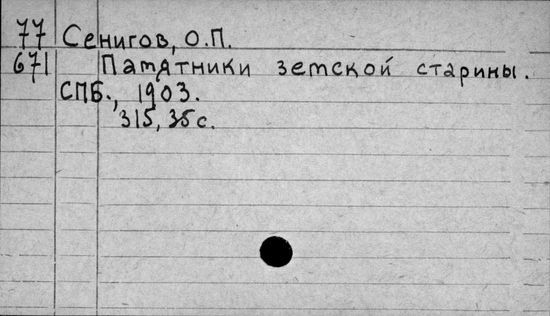 77 Сенигов, О.П.
671 Памятники земской старины.
СПБ., 1903.
315, 35 с.